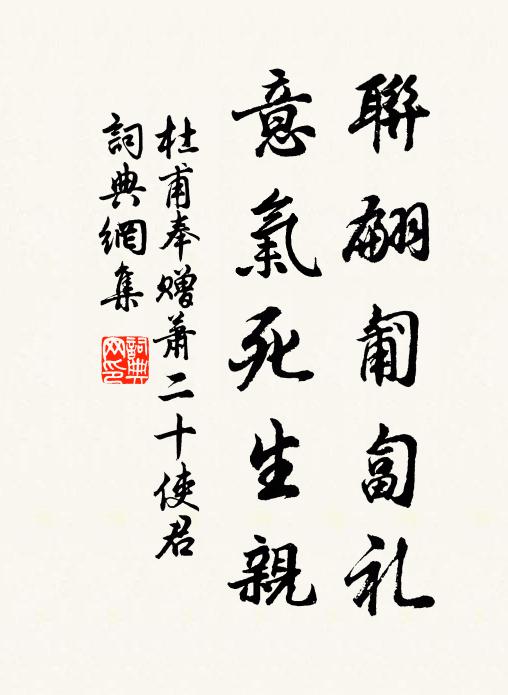 聯翩匍匐礼
意氣死生親
杜甫奉贈蕭二十使君
詞典網集
詞典網印